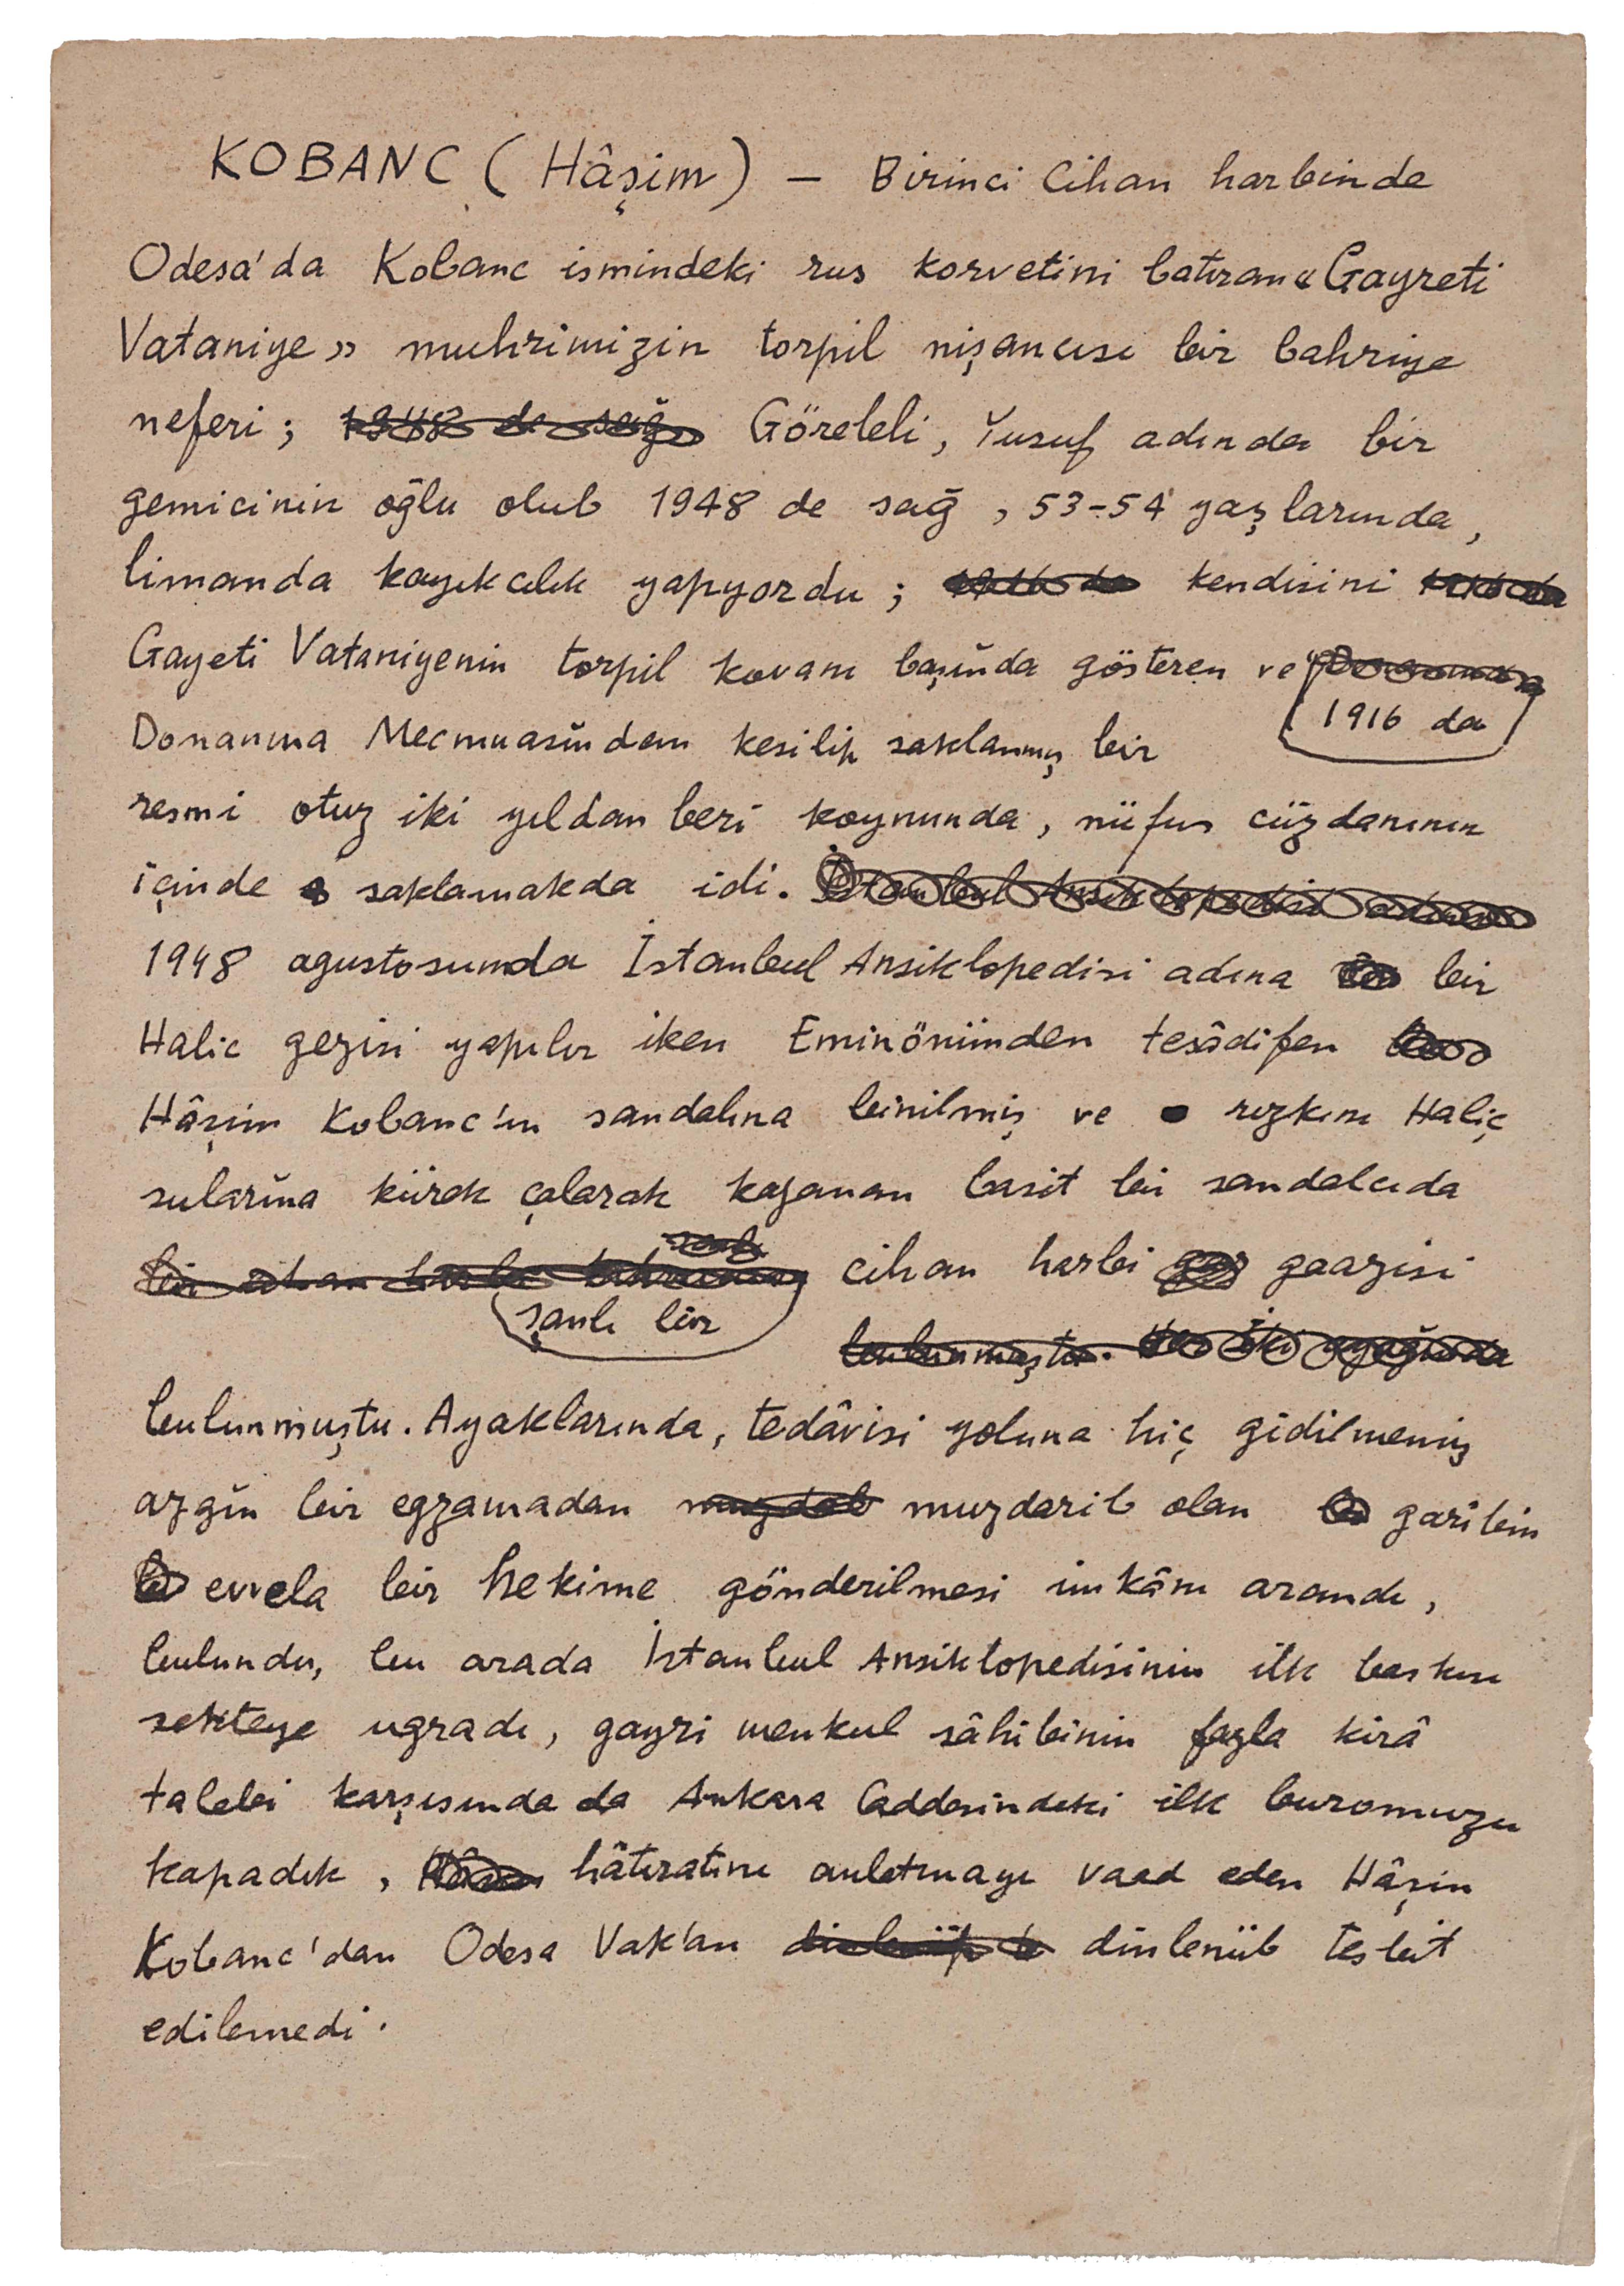 KOBANC (Hâşim) — Birinci Cihan harbinde
Odesa'da Kobanc ismindeki rus korvetini batıran «Gayreti
Vataniye» muhrimizin torpil nişancısı bir bahriye
neferi; 1948 de sağ Göreleli, Yusuf adında bir
gemicinin oğlu olub 1948 de sağ, 53-54 yaşlarında,
limanda kayıkcılık yapıyordu; 1916 da kendisini
Gayeti Vataniyenin torpil kovanı başında gösteren ve
1916 da
Donanma Mecmuasından kesilip saklanmış bir
resmi otuz iki yıldan beri koynunda, nüfus cüzdanının
içinde saklamakda idi. İstanbul Ansiklopedisi adına
1948 agustosunda İstanbul Ansiklopedisi adına bir
Halic gezisi yapılır iken Eminönünden tesâdifen
Hâşim Kobanc'ın sandalına binilmiş ve rızkını Haliç
sularına kürek çalarak kazanan basit bir sandalcıda
cihan harbi gaazisi
şanlı bir
bulunmuştu. Her iki ayağında
bulunmuştu. Ayaklarında, tedâvisi yoluna hiç gidilmemiş
azgın bir egzamadan muzdarib olan garibin
evvela bir hekime gönderilmesi imkânı arandı,
bulundu, bu arada İstanbul Ansiklopedisinin ilk baskısı
sekteye ugradı, gayri menkul sâhibinin fazla kirâ
talebi karşısında da Ankara Caddesindeki ilk buromuzu
kapadık, hâtıratını anlatmayı vaad eden Hâşim
Kobanc'dan Odesa Vak'ası dinleniib tesbit
edilemedi.